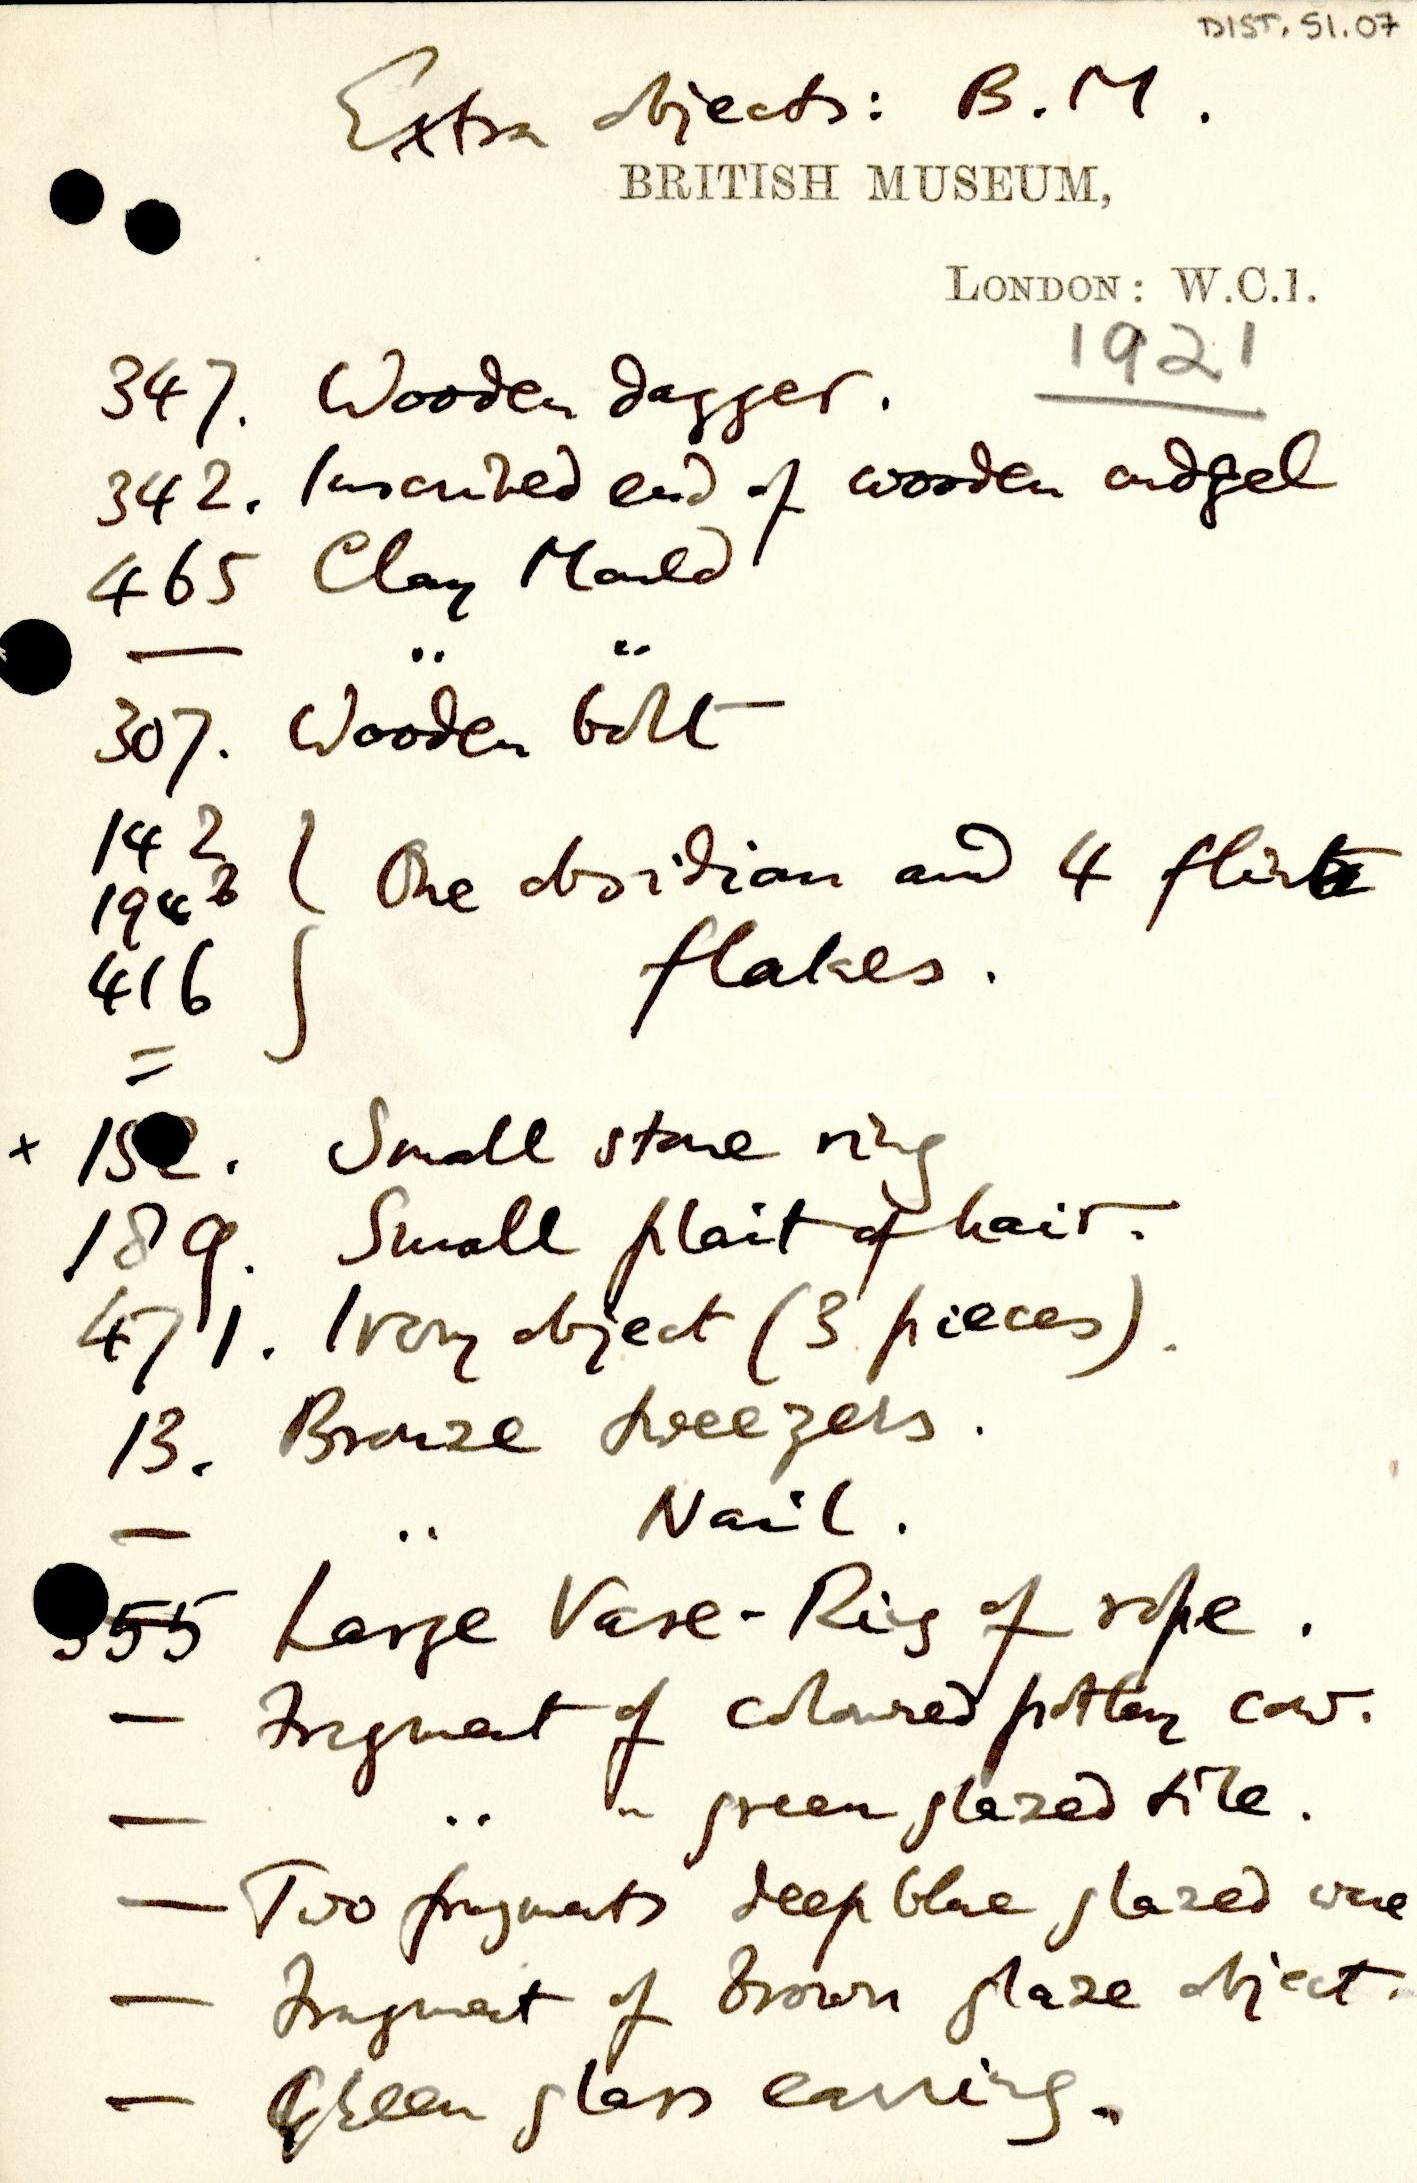 DIST. 51.07
Extra objects: B.M.
BRITISH MUSEUM,
LONDON: W.C.1.
1921
347. Wooden dagger.
342. Inscribed end of wooden cudgel
465 Clay Mould
— " "
307. Wooden bolt
142
194
416
=
One obsidian and 4 flint
flakes.
x 152. Small stone ring
189. Small plait of hair.
471. Ivory object (3 pieces).
13. Bronze tweezers.
— " Nail.
555 Large Vase-Ring of rope.
— Fragment of coloured pottery cow.
— " " green glazed tile.
— Two fragments deep blue glazed ware
— Fragment of brown glaze object.
— Green glass earring.